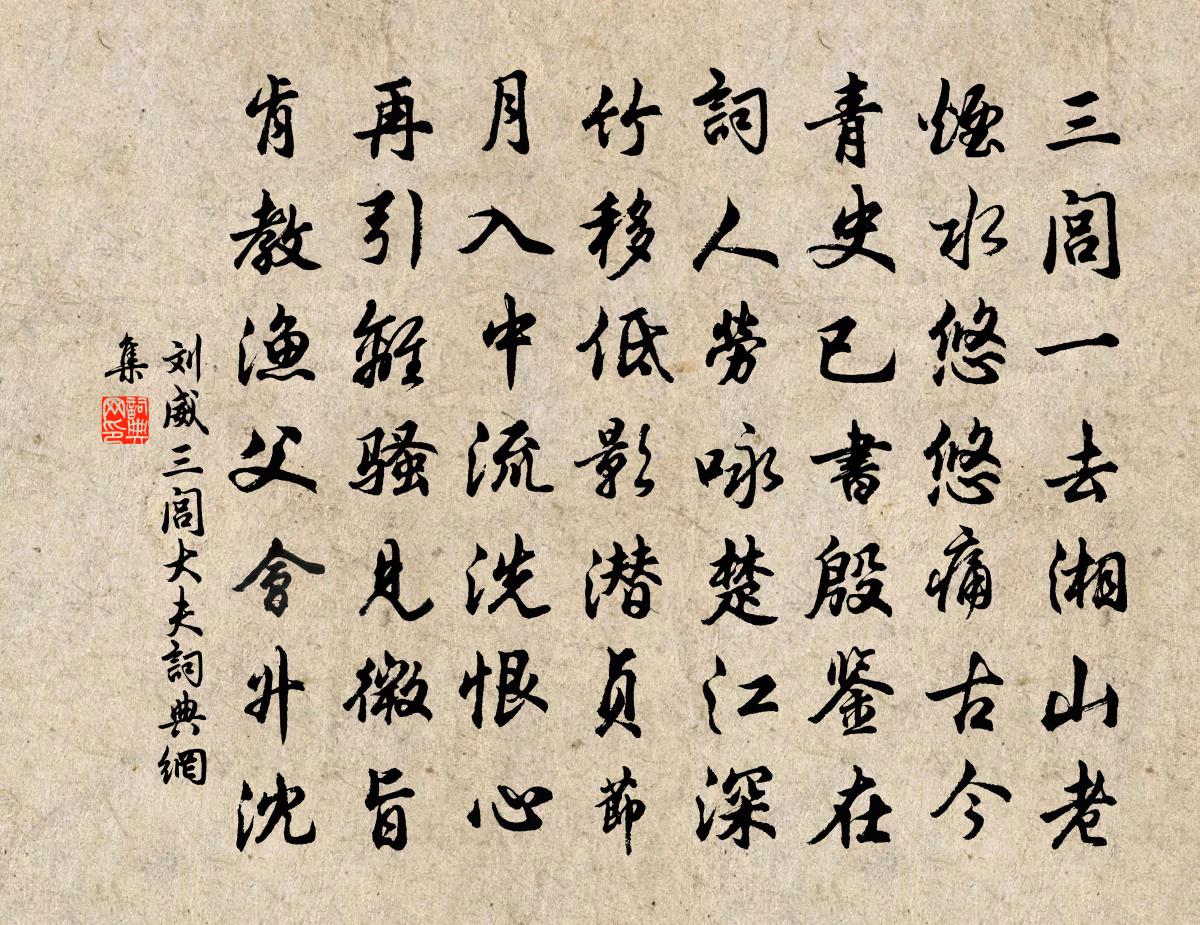 三閭一去湘山老
煙水悠悠痛古今
青史已書殷鉴在
詞人勞咏楚江深
竹移低影潜貞節
月入中流洗恨心
再引離騷見微旨
肯教漁父會升沈
刘威三閭大夫詞典網
集
詞典網印